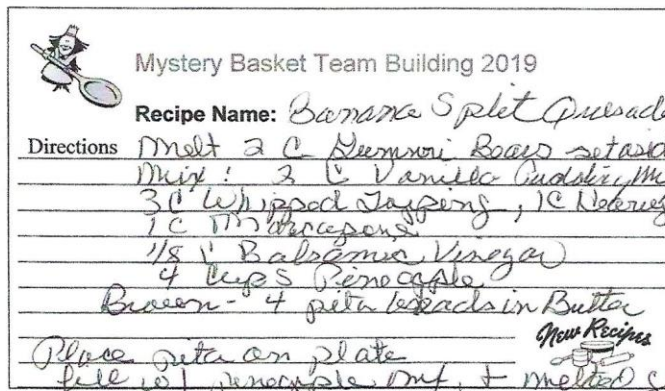 Mystery Basket Team Building 2019
Recipe Name: Banana Split Quesad
Directions Melt 2 C Gummi Bears setasid
Mix: 2 C Vanilla Pudding Mi
3 C Whipped Topping, 1C
1 C Marscapone
1/8 C Balsamic Vinegar
4 Cups Pineapple
Brown - 4 pita breads in Butter
New Recipes
Place pita on plate
fill w/ pineapple mix + melted c